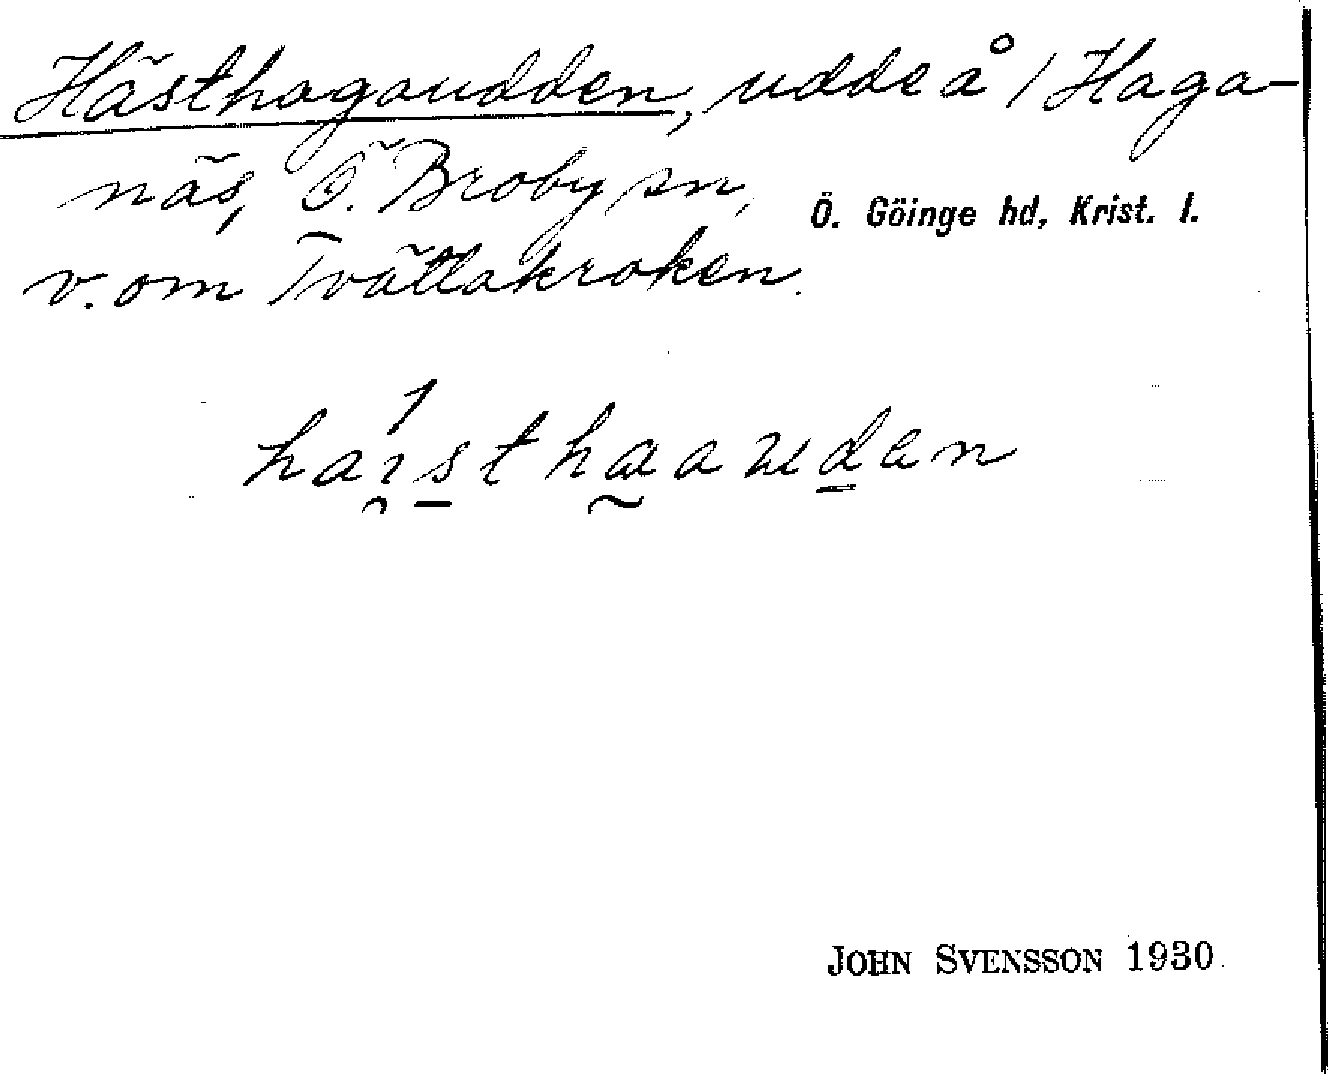 Hästhagaudden, udde å / Haga-
näs, Ö. Broby sn, Ö. Göinge hd, Krist. l.
v. om Tvättakroken.
haısthaaauden
JOHN SVENSSON 1930.